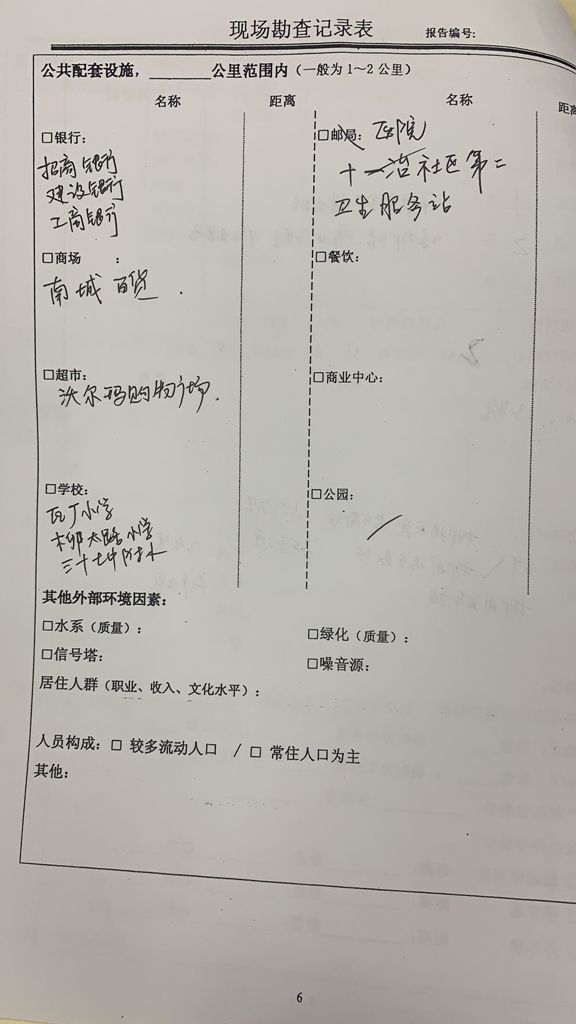 现场勘查记录表
报告编号:
公共配套设施，______公里范围内（一般为1～2公里）
名称 距离 名称 距离
□银行:
招商银行
建设银行
工商银行
□邮局: 医院
十一冶社区第二
卫生服务站
□商场 :
南城百货.
□餐饮:
□超市:
沃尔玛购物广场.
□商业中心:
□学校:
瓦厂小学
柳太路小学
三十七中附小
□公园: /
其他外部环境因素:
□水系（质量）:
□绿化（质量）:
□信号塔:
□噪音源:
居住人群（职业、收入、文化水平）:
人员构成: □ 较多流动人口 / □ 常住人口为主
其他:
6